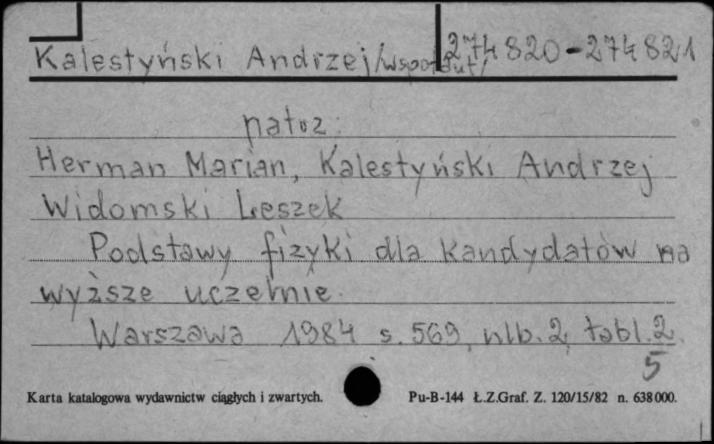 Kalestyński Andrzej /współaut/ 274820-274821
patrz:
Herman Marian, Kalestyński Andrzej
Widomski Leszek
Podstawy fizyki dla kandydatów na
wyższe uczelnie.
Warszawa 1984 s. 569, nlb. 2, tabl. 2.
5
Karta katalogowa wydawnictw ciągłych i zwartych. Pu-B-144 Ł.Z.Graf. Z. 120/15/82 n. 638000.